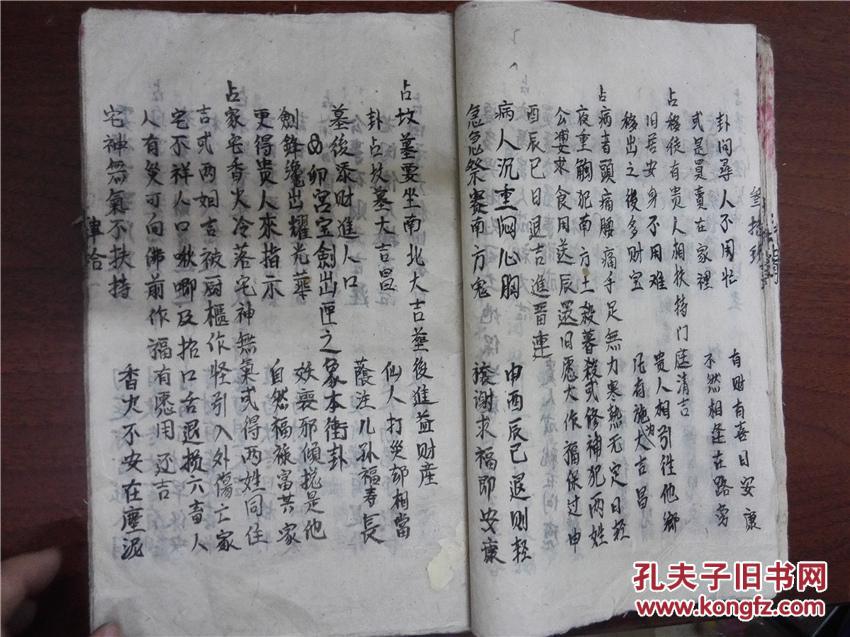 卦问尋人不用忙　有财有喜日安康
式是買賣在家裡　不然相逢在路旁
占移徙有贵人相扶持门庭清吉
旧居安身不用难　贵人相引往他鄉
移出之後多财宝　大吉昌
占病者頭痛腰痛手足無力寒熱无定日轻
夜重觸犯南方土殺暮殺或修補犯两姓
公婆求食用送辰還旧愿大作福保过申
酉辰巳日退吉進晋連
病人沉重悶心胸　申酉辰巳退则轻
急急祭賽南方鬼　禳谢求福即安康
占坟墓要坐南北大吉塟後進益财産
卦占坟墓大吉昌　仙人打災部相當
墓後添财進人口　蔭注儿孙福寿長
卯宮宝劍出匣之象本衛卦
劍鋒纔出耀光華　妖喪邪傾扰是他
更得贵人來指示　自然福禄富共家
占家宅香火冷落宅神無氣式得两姓同住
吉式两姐吉被厨櫃作怪引入外傷亡家
宅不祥人口啾唧及招口舌退损六畜人
人有災可向佛前作福有愿用还吉
宅神無氣不扶持　香火不安在塵泥
孔夫子旧书网
www.kongfz.com